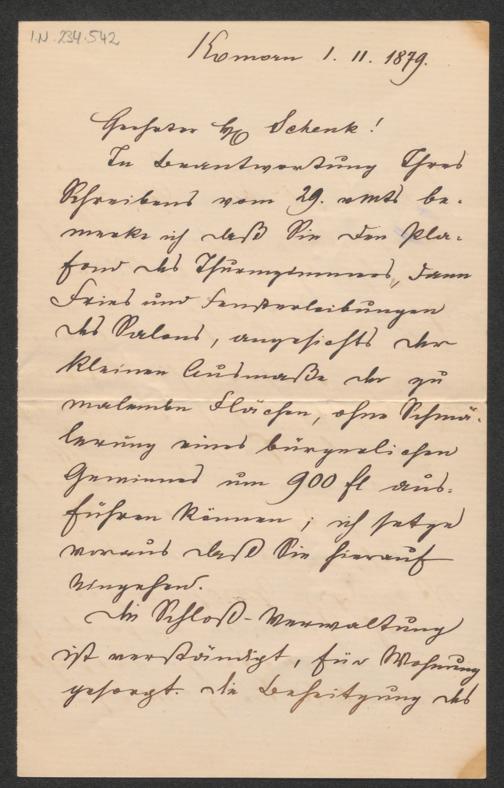 I.N. 234.542
Komorn 1. 11. 1879.
Geehrter H. Schenk!
In Beantwortung Ihres
Schreibens vom 29. v mts be-
merke ich daß Sie den Pla-
fond des Thurmzimmers, dann
Fries und Fensterleibungen
des Salons, angesichts der
kleinen Ausmaße der zu
malenden Flächen, ohne Schmä-
lerung eines bürgerlichen
Gewinnes um 900 fl aus-
führen können; ich setze
voraus daß Sie hierauf
eingehen.
Die Schloß-Verwaltung
ist verständigt, für Wohnung
gesorgt. Die des